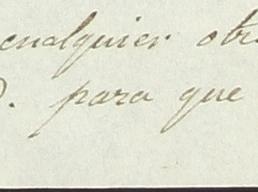 cualquier otr
D. para que